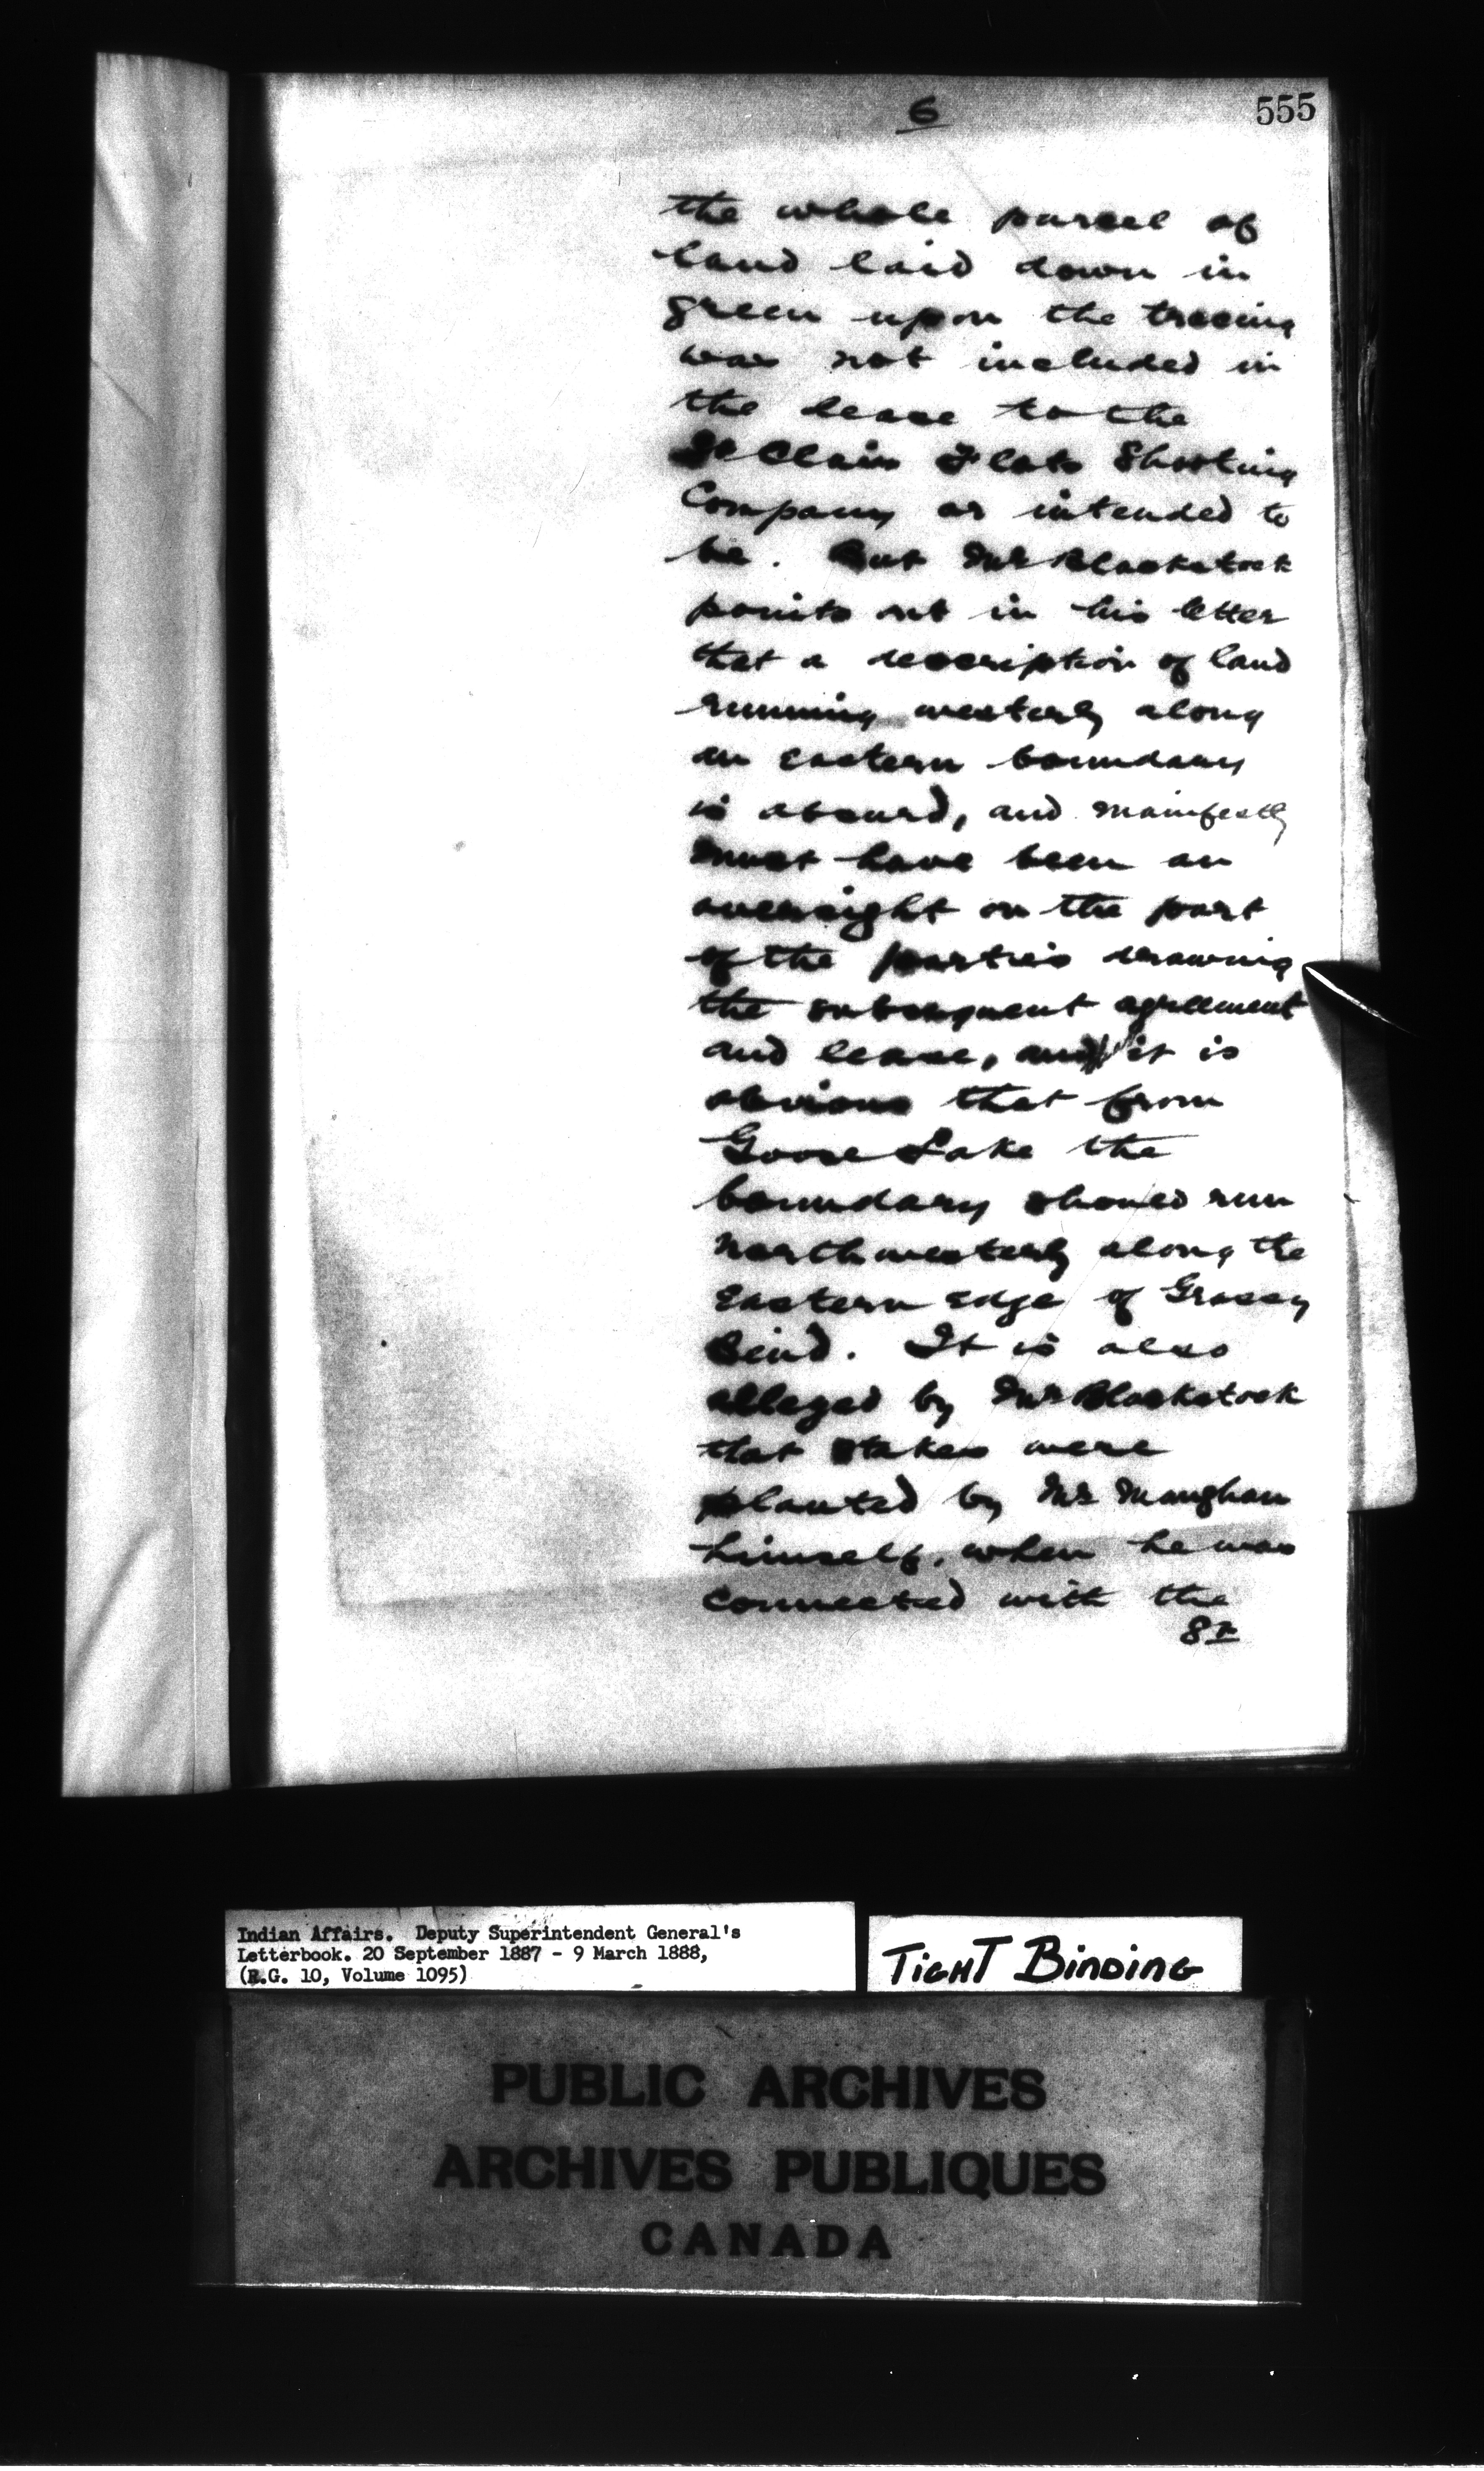 6
555
the whole parcel of
land laid down in
green upon the tracing
was not included in
the lease to the
St Clair Flats Shooting
Company as intended to
be. But Mr Blackstock
points out in his letter
that a description of land
running westerly along
an eastern boundary
is absurd, and manifestly
must have been an
oversight on the part
of the parties drawing
the subsequent agreement
and lease, and it is
obvious that from
Goose Lake the
boundary should run
northwesterly along the
Eastern edge of Grassy
Bend. It is also
alleged by Mr Blackstock
that stakes were
planted by Mr Maughan
himself, when he was
connected with the
St
Indian Affairs. Deputy Superintendent General's
Letterbook. 20 September 1887 - 9 March 1888,
(R.G. 10, Volume 1095)
TIGHT BINDING
PUBLIC ARCHIVES
ARCHIVES PUBLIQUES
CANADA